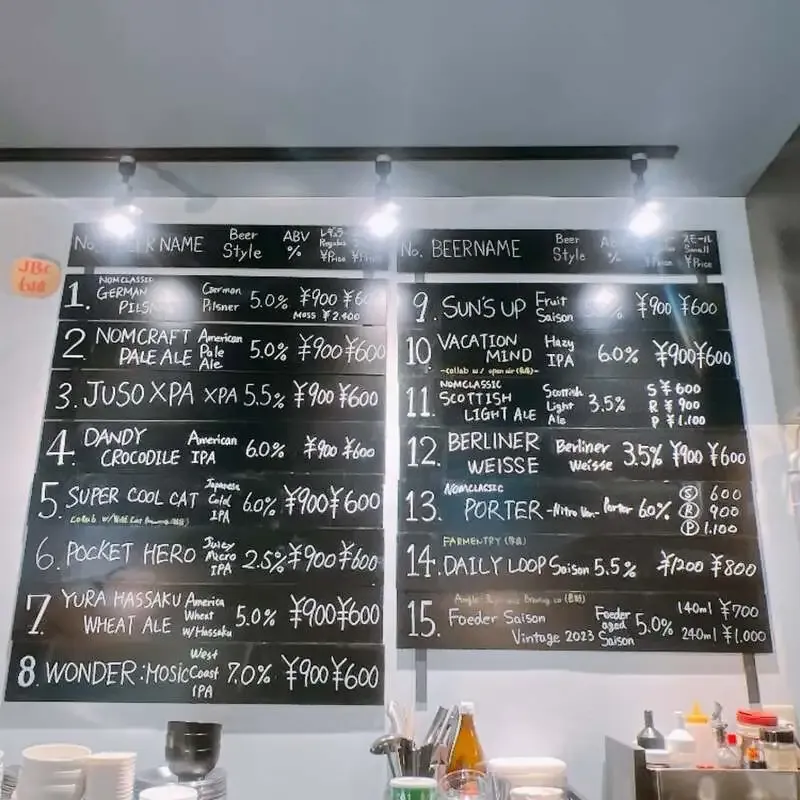 No. BEER NAME Beer Style ABV % レギュラー Regular ¥Price ¥Price
1. NOMCLASSIC GERMAN PILSNER German Pilsner 5.0% ¥900 ¥600 Mass ¥2.400
2 NOMCRAFT PALE ALE American Pale Ale 5.0% ¥900 ¥600
3. JUSO XPA XPA 5.5% ¥900 ¥600
4. DANDY CROCODILE American IPA 6.0% ¥900 ¥600
5. SUPER COOL CAT Japanese Cold IPA 6.0% ¥900 ¥600
collab w/
6. POCKET HERO Juicy Micro IPA 2.5% ¥900 ¥600
7 YURA HASSAKU WHEAT ALE America Wheat w/Hassaku 5.0% ¥900 ¥600
8. WONDER:MOSIC West Coast IPA 7.0% ¥900 ¥600
No. BEERNAME Beer Style % ¥Price スモール Small ¥Price
9. SUN'S UP Fruit Saison ¥900 ¥600
10 VACATION MIND Hazy IPA 6.0% ¥900 ¥600
-collab w/ open air
11. NOMCLASSIC SCOTTISH LIGHT ALE Scottish Light Ale 3.5% S ¥600
R ¥900
P ¥1.100
12. BERLINER WEISSE Berliner Weisse 3.5% ¥900 ¥600
13. NOMCLASSIC PORTER -Nitro Ver.- Porter 6.0% S 600
R 900
P 1.100
FARMENTRY
14. DAILY LOOP Saison 5.5% ¥1200 ¥800
15. Foeder Saison Vintage 2023 Foeder aged Saison 5.0% 140ml ¥700
240ml ¥1.000